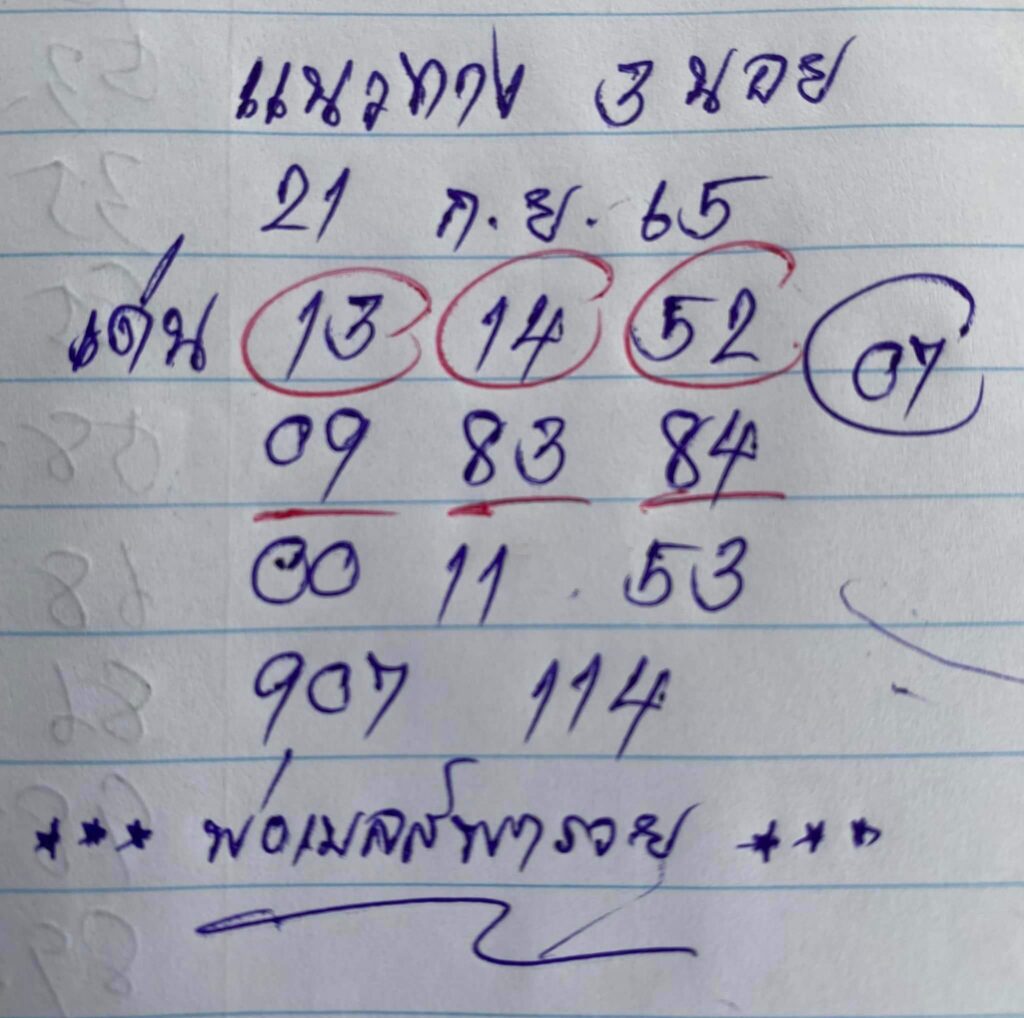 แนวทาง 3 นอย
21 ก.ย. 65
เด่น 13 14 52 07
09 83 84
00 11 53
907 114
*** พ่อเมลล์พารวย ***